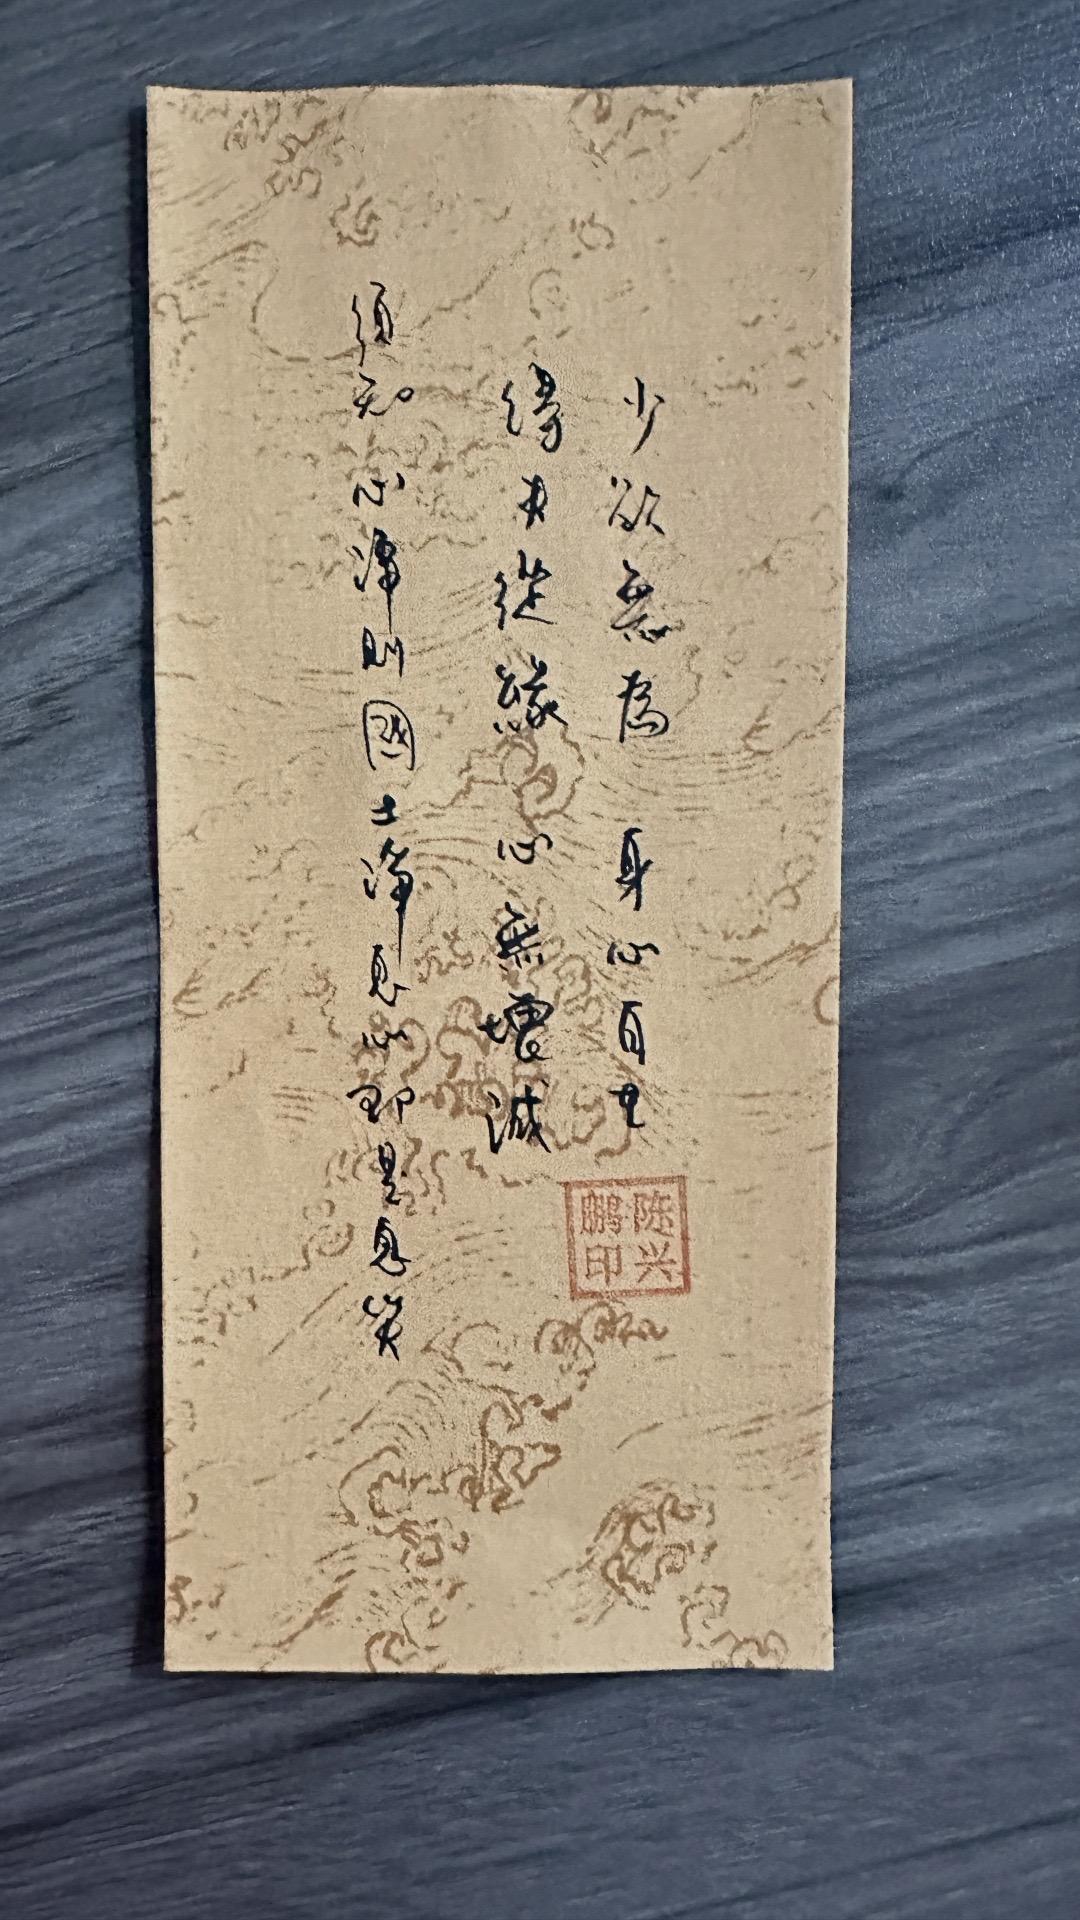 少欲無為 身心自在
得失從緣 心無增減
須知心淨則國土淨息心即是息災
陈兴鹏印